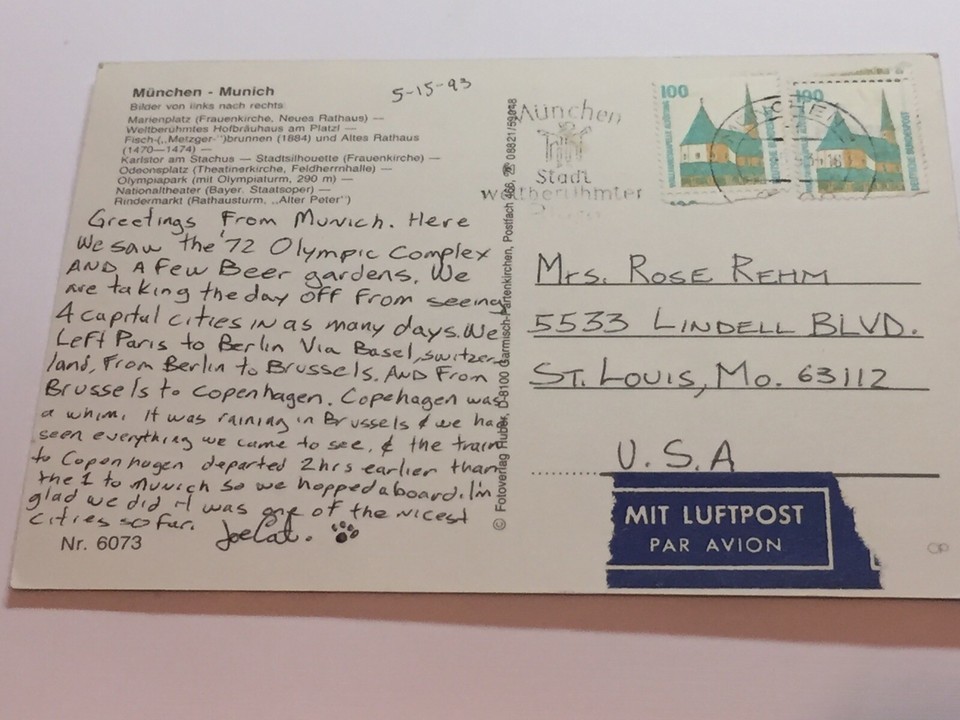 München - Munich
Bilder von links nach rechts:
Marienplatz (Frauenkirche, Neues Rathaus) —
Weltberühmtes Hofbräuhaus am Platzl —
Fisch-(„Metzger-")brunnen (1884) und Altes Rathaus
(1470—1474) —
Karlstor am Stachus — Stadtsilhouette (Frauenkirche) —
Odeonsplatz (Theatinerkirche, Feldherrnhalle) —
Olympiapark (mit Olympiaturm, 290 m) —
Nationaltheater (Bayer. Staatsoper) —
Rindermarkt (Rathausturm, „Alter Peter")
5-15-93
Greetings From Munich. Here
We saw the '72 Olympic Complex
AND A Few Beer gardens. We
are taking the day off From seeing
4 capital cities in as many days. We
Left Paris to Berlin Via Basel, switzer-
land, From Berlin to Brussels. AND From
Brussels to Copenhagen. Copehagen was
a whim, It was raining in Brussels & we had
seen everything we came to see, & the train
to Copenhagen departed 2hrs earlier than
the 1 to Munich so we hopped aboard. I'm
glad we did it was one of the nicest
cities so far. JoeCat.
Nr. 6073
© Fotoverlag Huber, D-8100 Garmisch-Partenkirchen, Postfach 466, ☎ 08821/
München
Stadt
weltberühmter
100
100
DEUTSCHE BUNDESPOST
MÜNCHEN
Mrs. ROSE REHM
5533 LINDELL BLVD.
ST. LOUIS, MO. 63112
U.S.A
MIT LUFTPOST
PAR AVION